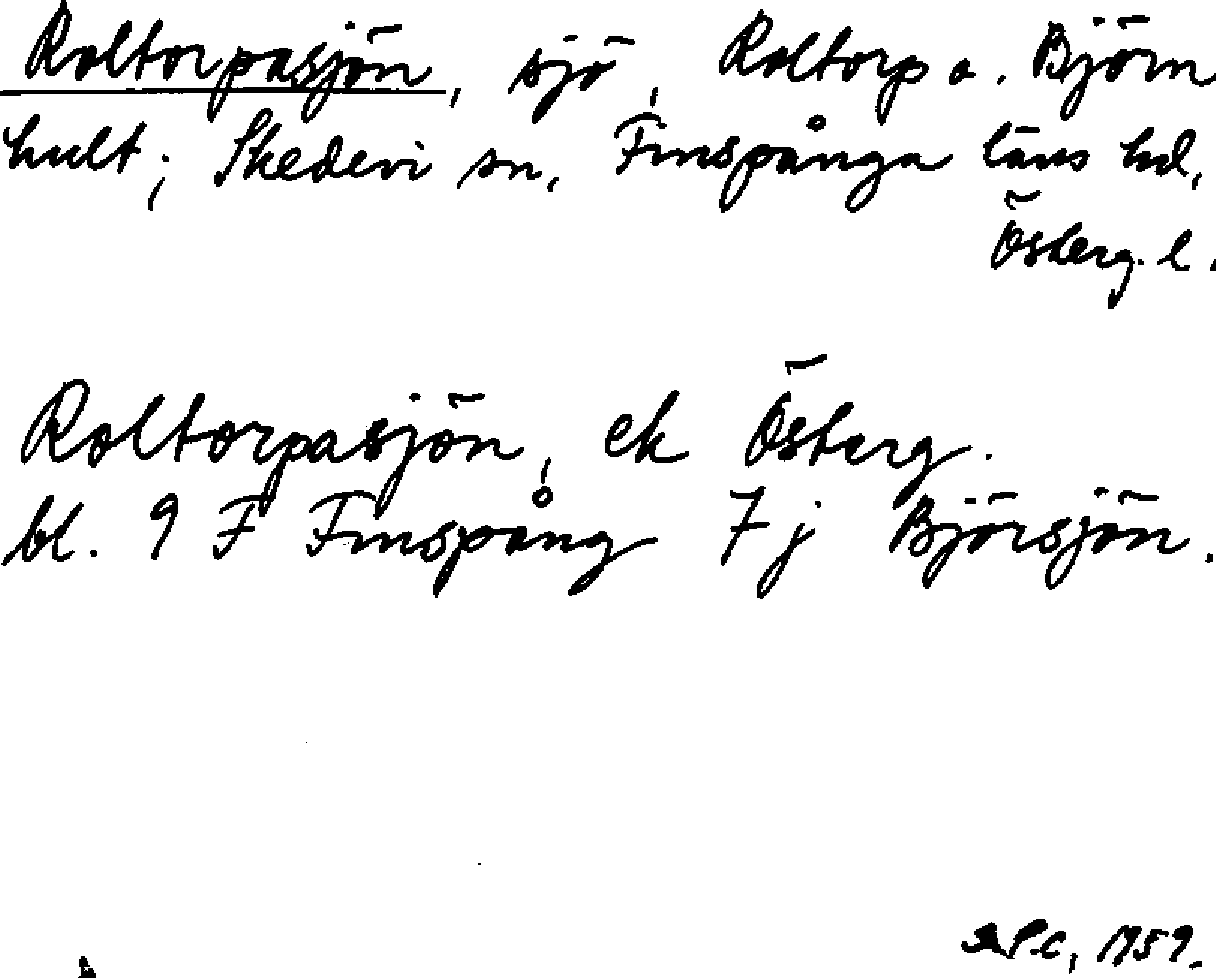 Roltorpasjön, sjö, Roltorp o. Björn
hult; Skedevi sn, Finspånga läns hd,
Österg. l.
Roltorpasjön, ek Österg.
bl. 9 F Finspång 7 j Björsjön.
1959.